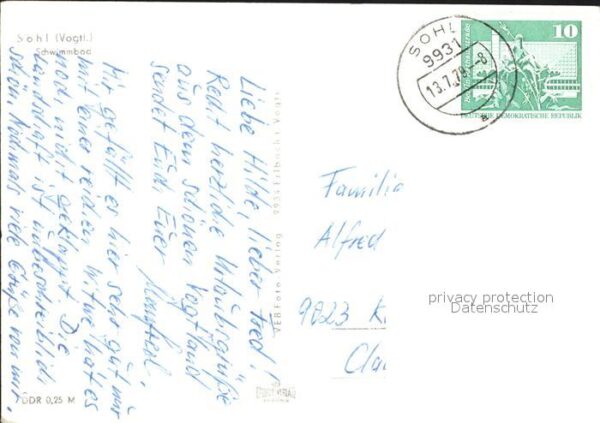 Sohl (Vogtl.)
Schwimmbad
Liebe Hilde, lieber Fred!
Recht herzliche Urlaubsgrüße
aus dem schönen Vogtland
sendet Euch Euer Manfred.
Mir gefällt es hier sehr gut nur
mit einer reichen Witwe hat es
noch nicht geklappt. Die
Landschaft ist unbeschreiblich
schön. Nochmals viele Grüße von mir.
DDR 0,25 M
VEB Foto-Verlag 9933 Erlbach Vogtl
FOTO-VERLAG
SOHL
9931
13.7.79.-8
a
10
DEUTSCHE DEMOKRATISCHE REPUBLIK
Familie
Alfred
9023 K
Cla
privacy protection
Datenschutz